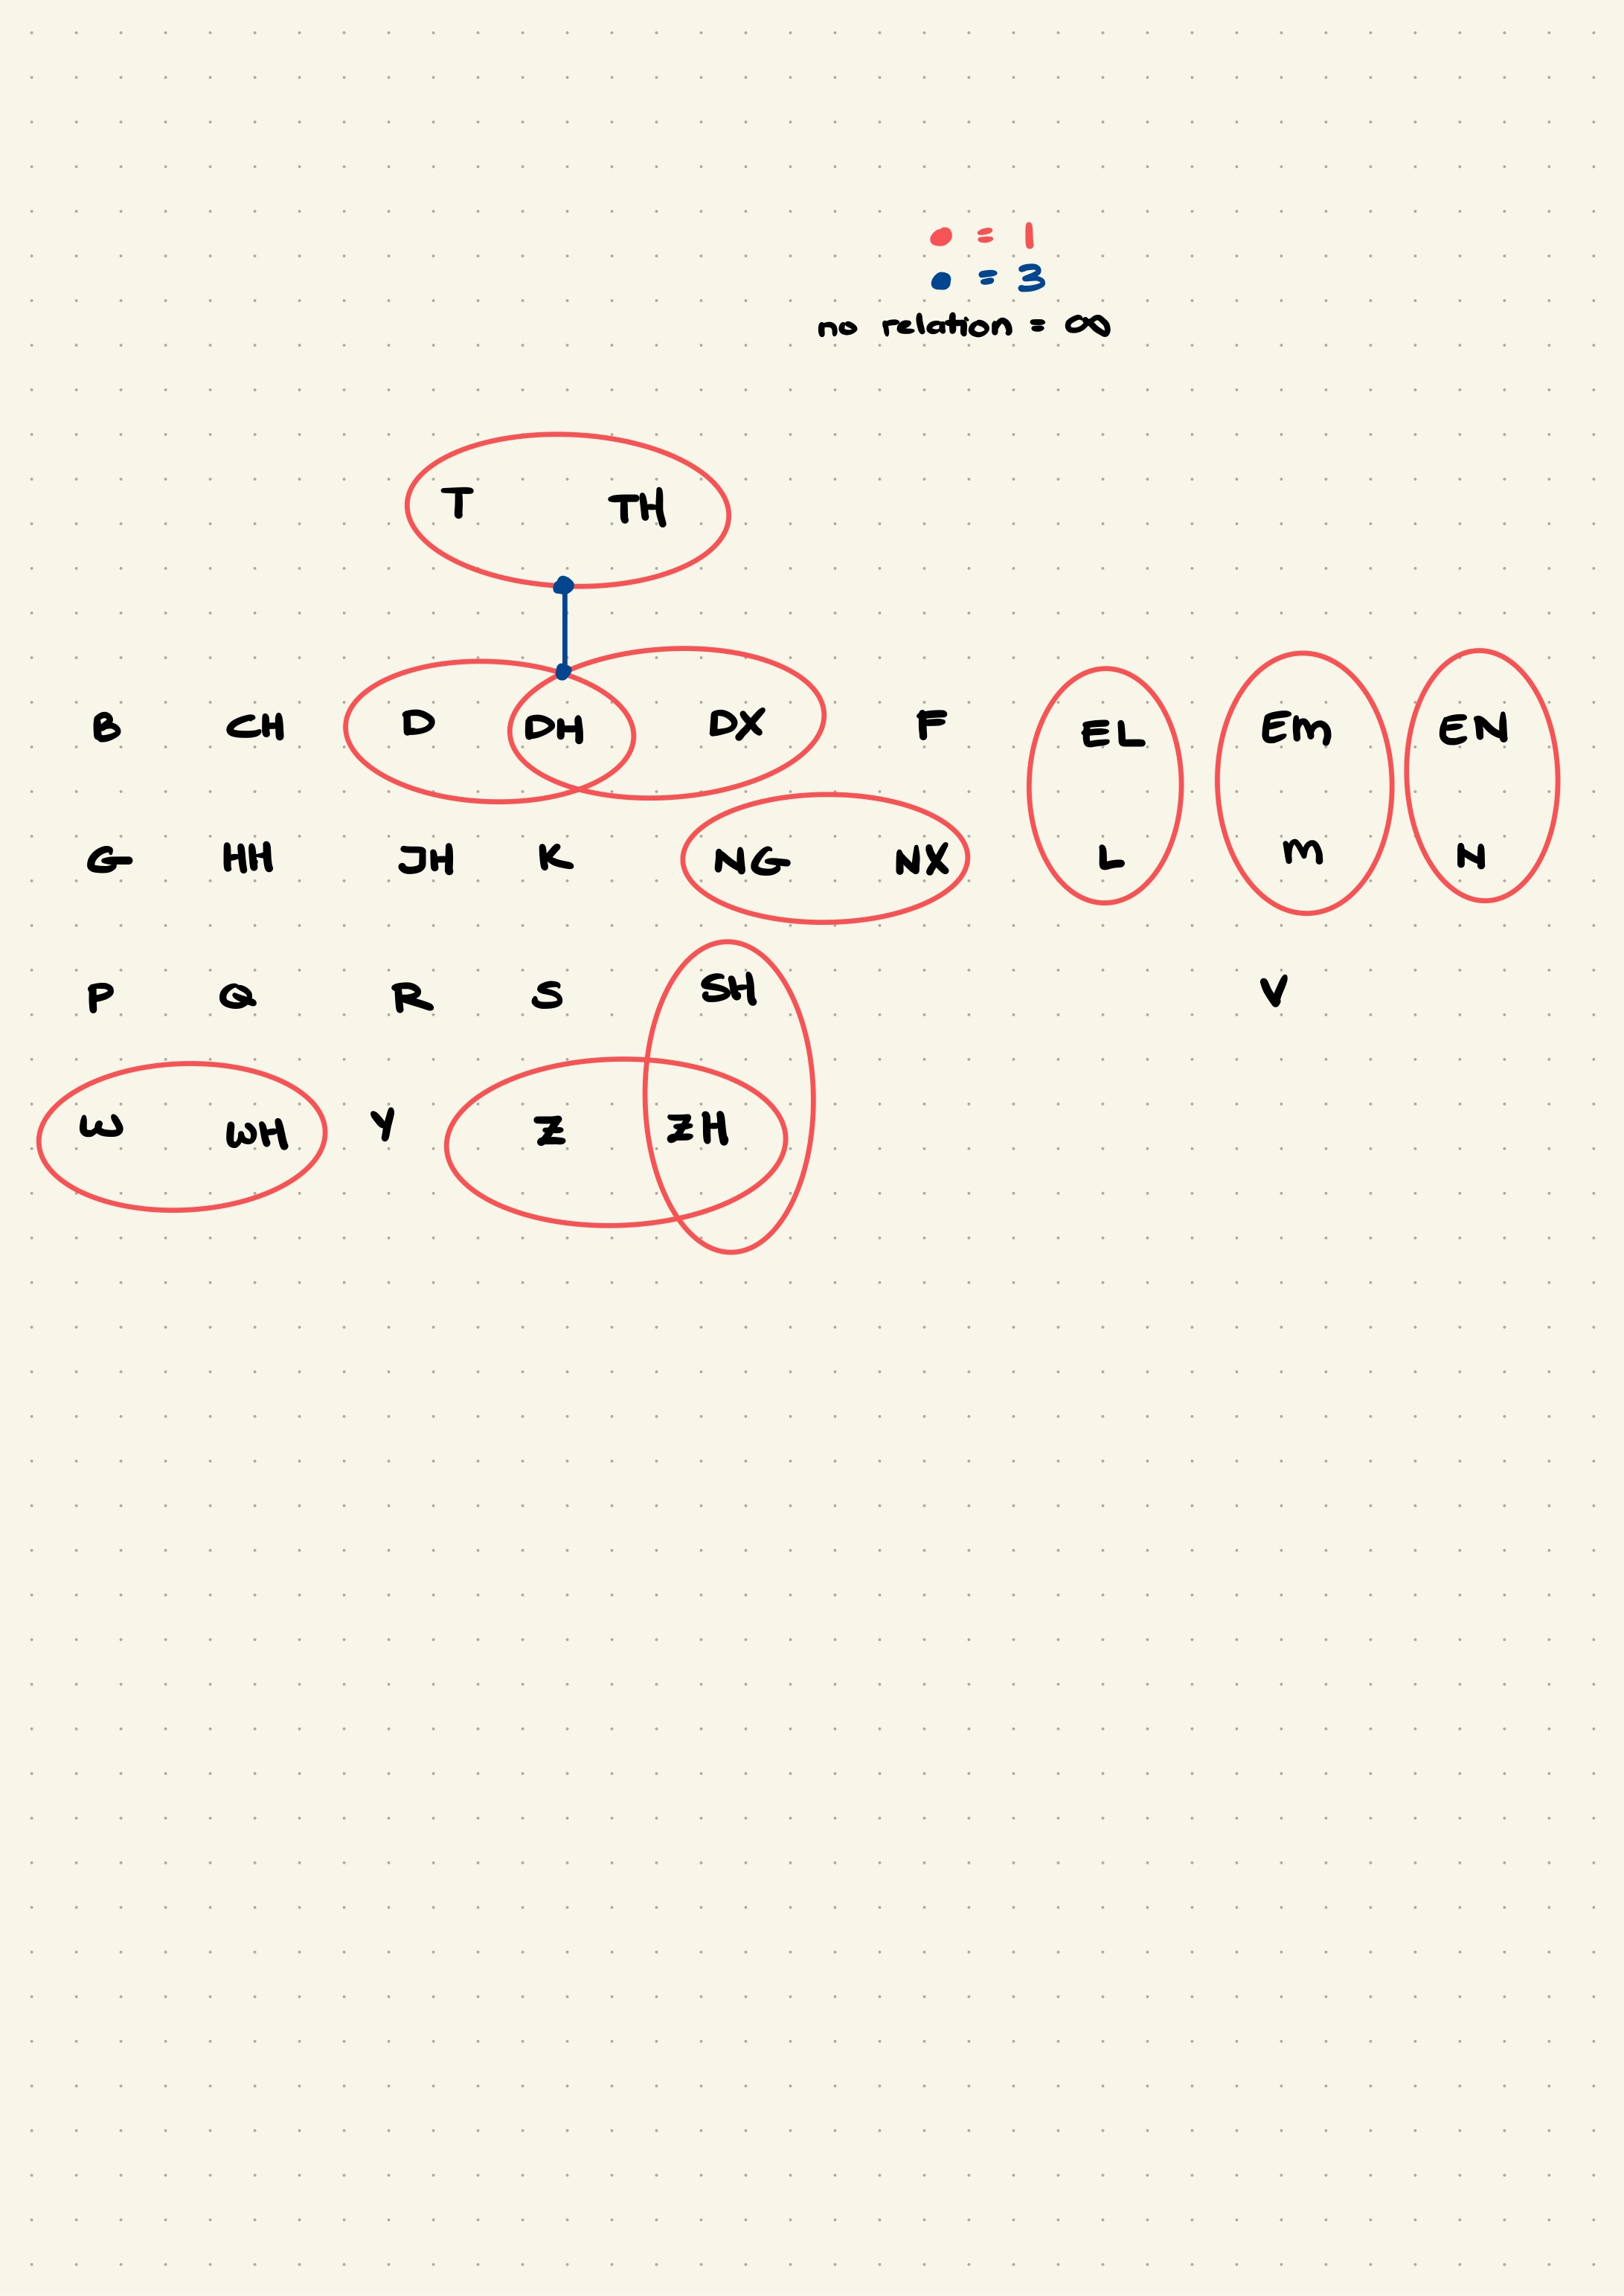 = 1
= 3
no relation = ∞
T TH
B CH D DH DX F EL EM EN
G HH JH K NG NX L M N
P Q R S SH V
W WH Y Z ZH